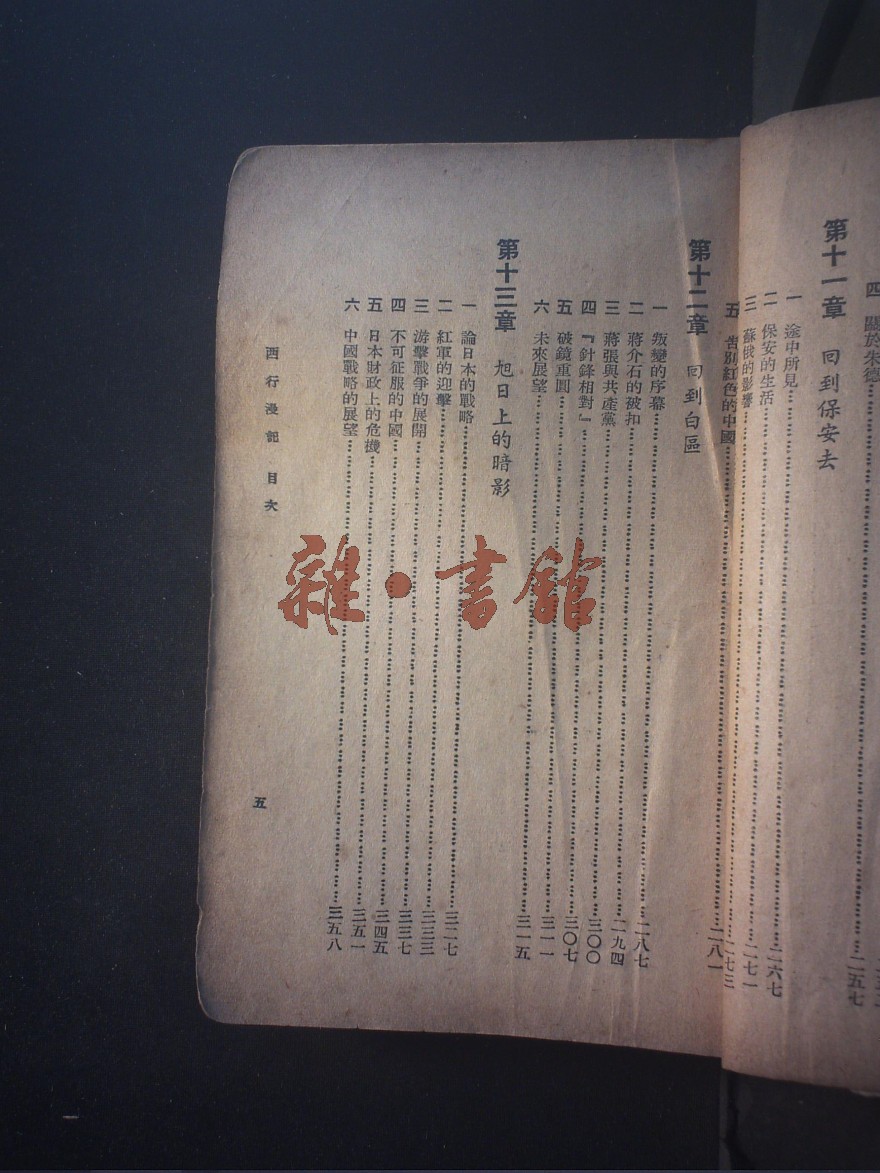 四 關於朱德……二五七
第十一章 回到保安去
一 途中所見……二六七
二 保安的生活……二七一
三 蘇俄的影響……二七三
五 告別紅色的中國……二八一
第十二章 回到白區
一 叛變的序幕……二八七
二 蔣介石的被扣……二九四
三 蔣張與共產黨……三〇〇
四 『針鋒相對』……三〇七
五 破鏡重圓……三一一
六 未來展望……三一五
第十三章 旭日上的暗影
一 論日本的戰略……三二七
二 紅軍的迎擊……三三三
三 游擊戰爭的展開……三三七
四 不可征服的中國……三四五
五 日本財政上的危機……三五一
六 中國戰略的展望……三五八
西行漫記 目次
五
雜·書館